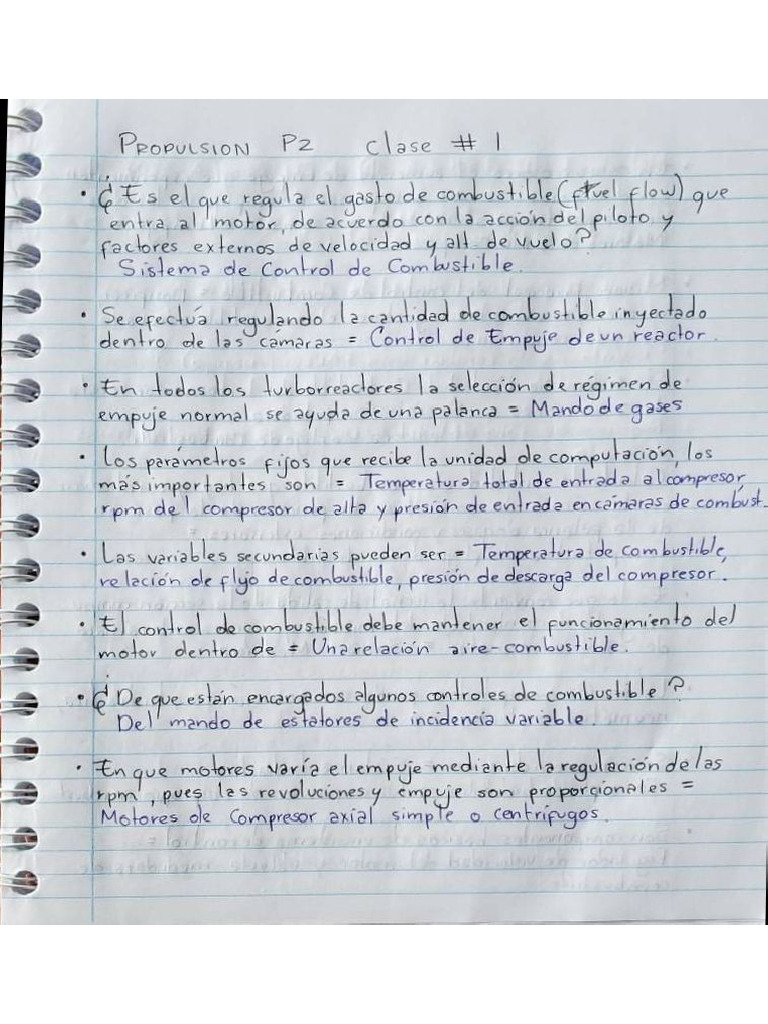 PROPULSION P2 Clase # 1
• ¿Es el que regula el gasto de combustible (fuel flow) que
entra al motor, de acuerdo con la acción del piloto y
factores externos de velocidad y alt. de vuelo?
Sistema de Control de Combustible.
• Se efectúa regulando la cantidad de combustible inyectado
dentro de las cámaras = Control de Empuje de un reactor.
• En todos los turborreactores la selección de régimen de
empuje normal se ayuda de una palanca = Mando de gases
• Los parámetros fijos que recibe la unidad de computación, los
más importantes son = Temperatura total de entrada al compresor,
rpm del compresor de alta y presión de entrada en cámaras de combust.
• Las variables secundarias pueden ser = Temperatura de combustible,
relación de flujo de combustible, presión de descarga del compresor.
• El control de combustible debe mantener el funcionamiento del
motor dentro de = Una relación aire-combustible.
• ¿De que están encargados algunos controles de combustible?
Del mando de estatores de incidencia variable.
• En que motores varía el empuje mediante la regulación de las
rpm, pues las revoluciones y empuje son proporcionales =
Motores de Compresor axial simple o centrífugos.